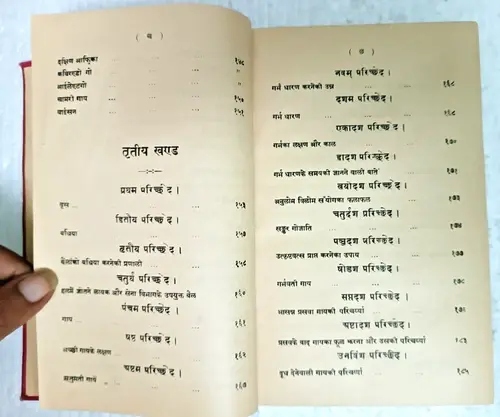 ( च )
दक्षिण आफ्रिका ... ... १४८
कबिरण्डो गो ... ... "
आईलेण्डगो ... ... "
खामरो गाय ... ... १५०
बाईसन ... ... १५१
तृतीय खण्ड
प्रथम परिच्छेद ।
वृष ... ... १५३
द्वितीय परिच्छेद ।
बधिया ... ... १५७
तृतीय परिच्छेद ।
बैलोंको बधिया करनेकी प्रणाली ... १५८
चतुर्थ परिच्छेद ।
हलमें जोतने लायक और सेना विभागके उपयुक्त बैल १६०
पंचम परिच्छेद ।
गाय ... ... १६१
षष्ठ परिच्छेद ।
अच्छी गायके लक्षण ... ... १६२
अष्टम परिच्छेद ।
ऋतुमती गाय ... ... १६७
( छ )
नवम् परिच्छेद ।
गर्भ धारण करनेकी उम्र ... १६८
दशम परिच्छेद ।
गर्भ धारण ... ... १६८
एकादश परिच्छेद ।
गर्भका लक्षण और काल ... १७०
द्वादश परिच्छेद ।
गर्भ धारणके समयको जानने वाली बातें ... १७१
त्रयोदश परिच्छेद ।
अनुलोम विलोम संयोगका फलाफल ... १७३
चतुर्दश परिच्छेद ।
सङ्कर गोजाति ... ... १७३
पञ्चदश परिच्छेद ।
उत्कृष्टवत्स प्राप्त करनेका उपाय ... १७५
षोडश परिच्छेद ।
गर्भवती गाय ... ... १७८
सप्तदश परिच्छेद ।
आसन्न प्रसवा गायकी परिचर्य्या ...
अष्टादश परिच्छेद ।
प्रसवके बाद गायका कृत्य करना और उसकी परिचर्य्या १८३
उनविंश परिच्छेद ।
दूध देनेवाली गायकी परिचर्य्या ... १८५